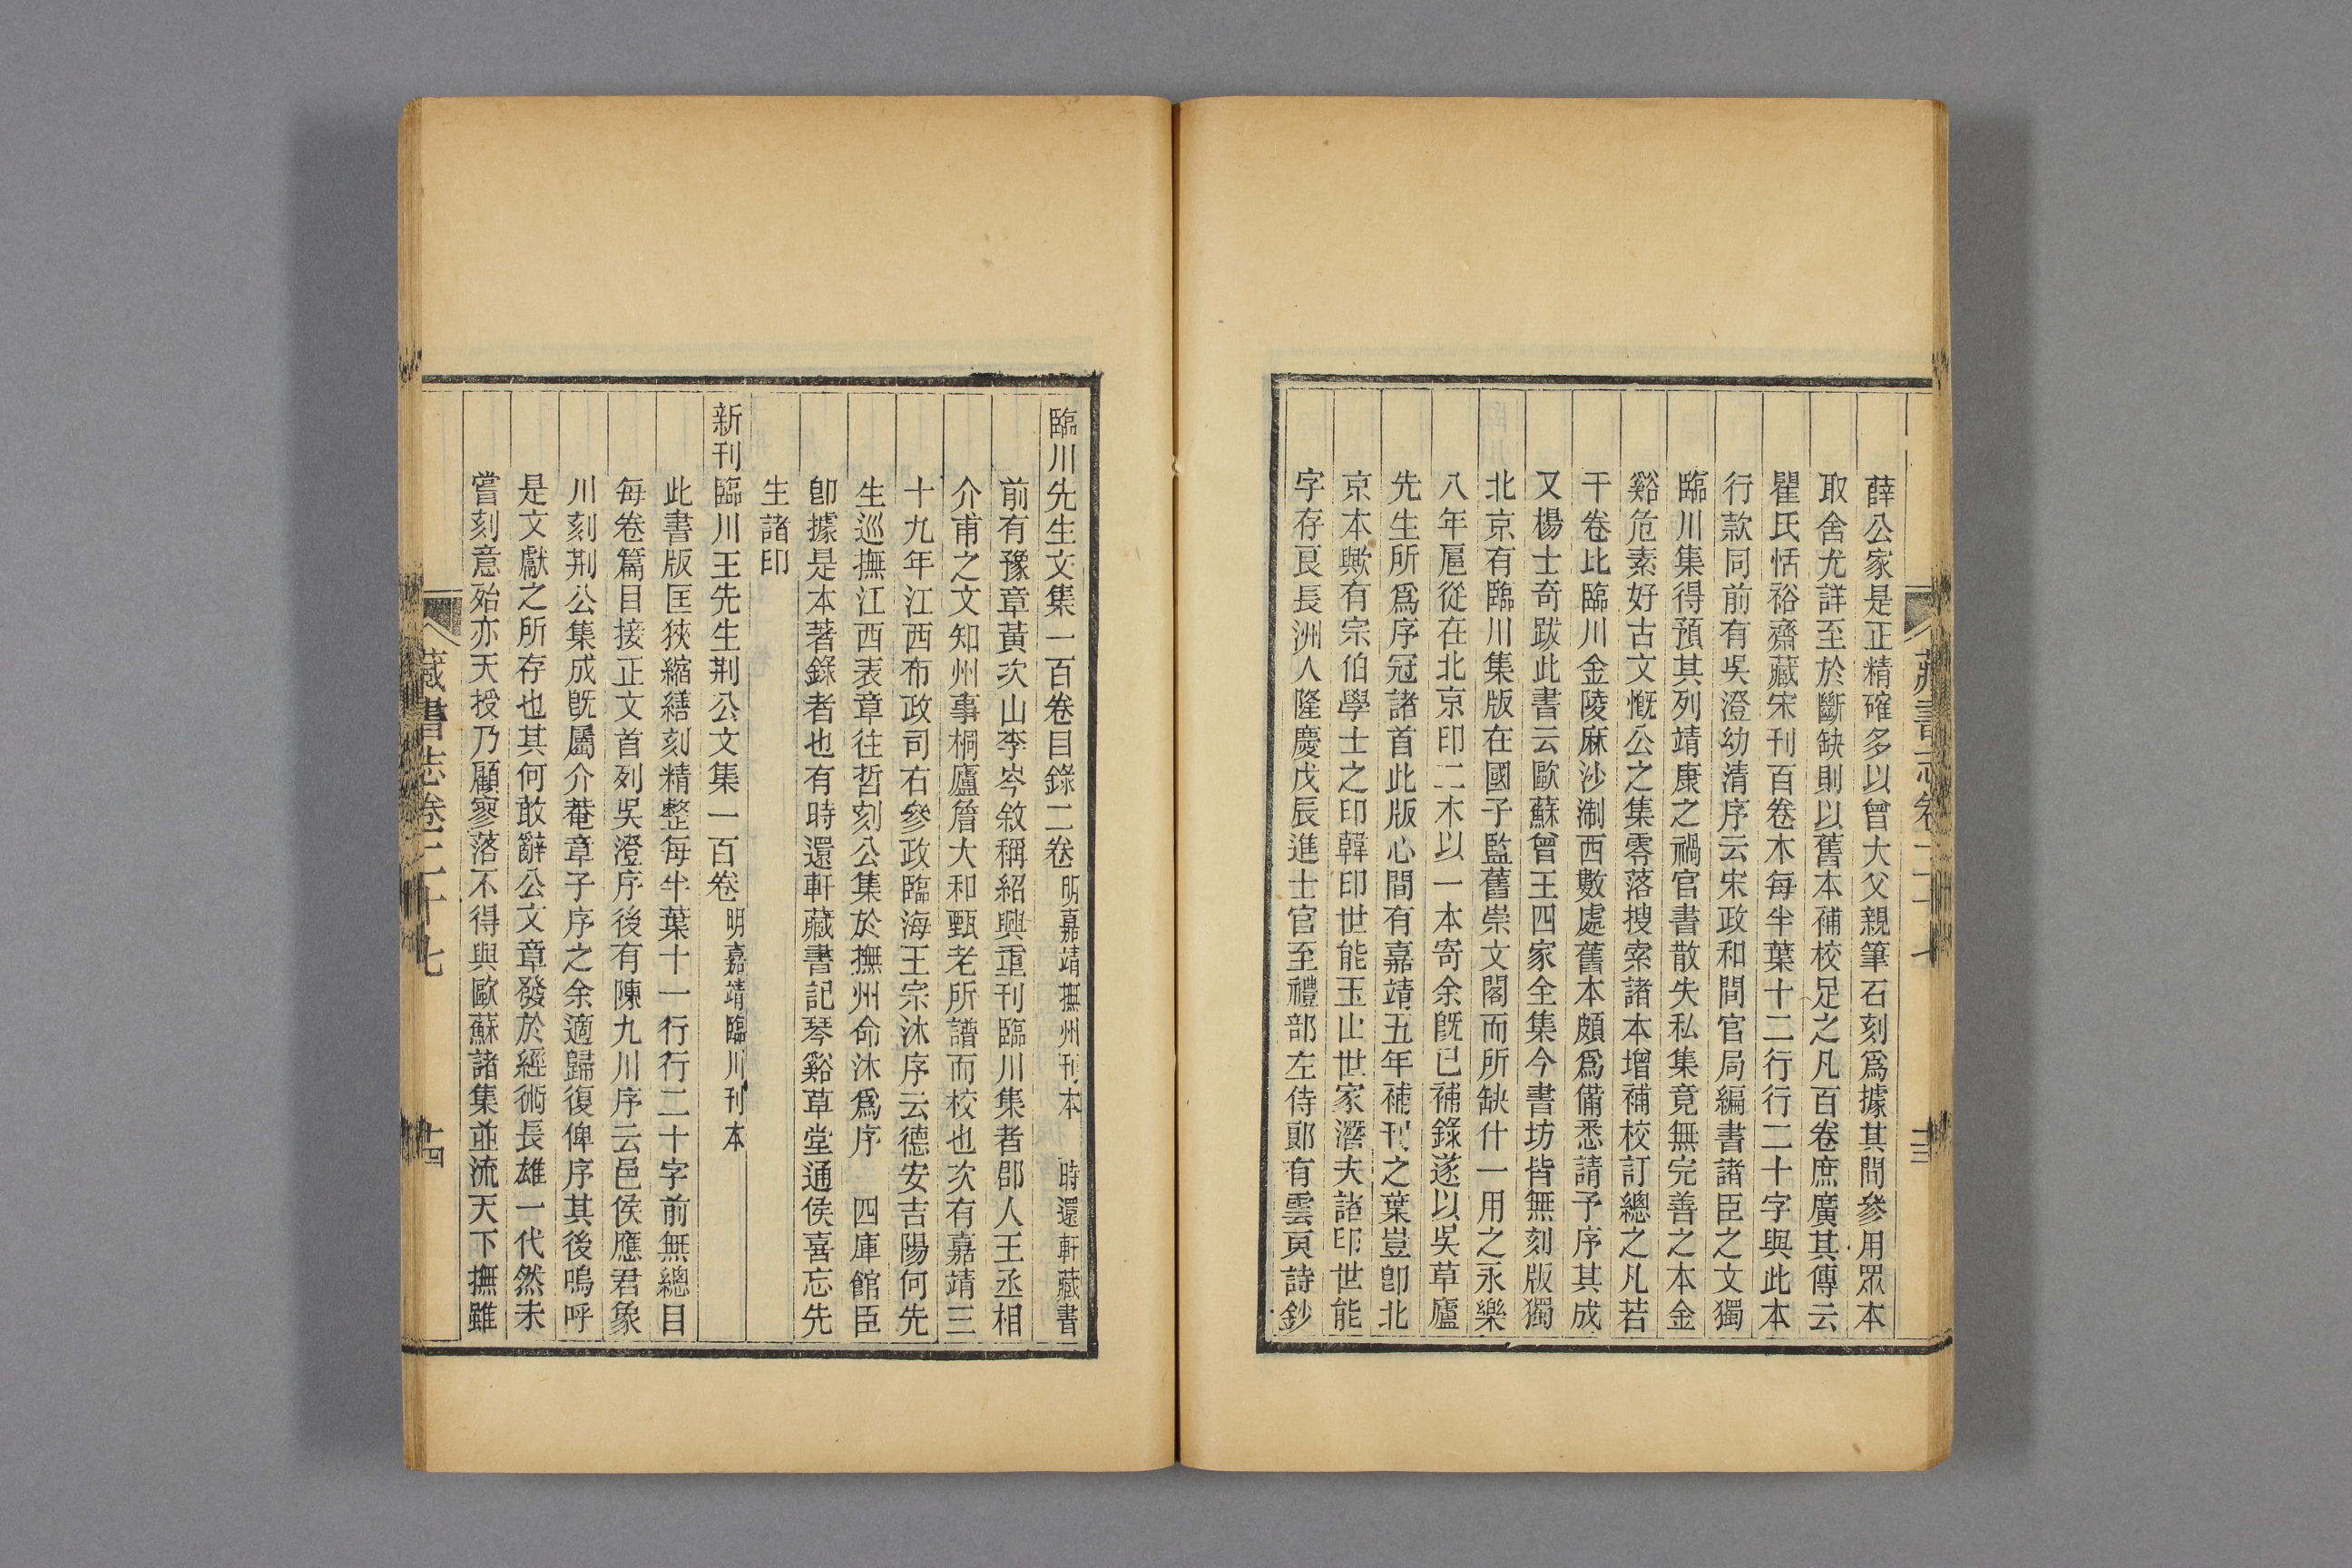 薛公家是正精確多以曾大父親筆石刻爲據其間參用眾本
取舍尤詳至於斷缺則以舊本補校足之凡百卷庶廣其傳云
瞿氏恬裕齋藏宋刊百卷本每半葉十二行行二十字與此本
行款同前有吳澄幼清序云宋政和間官局編書諸臣之文獨
臨川集得預其列靖康之禍官書散失私集竟無完善之本金
谿危素好古文慨公之集零落搜索諸本增補校訂總之凡若
干卷比臨川金陵麻沙淛西數處舊本頗爲備悉請予序其成
又楊士奇跋此書云歐蘇曾王四家全集今書坊皆無刻版獨
北京有臨川集版在國子監舊崇文閣而所缺什一用之永樂
八年扈從在北京印二本以一本寄余旣已補錄遂以吳草廬
先生所爲序冠諸首此版心間有嘉靖五年補刊之葉豈卽北
京本歟有宗伯學士之印韓印世能玉山世家潛夫諸印世能
字存良長洲人隆慶戊辰進士官至禮部左侍郞有雲東詩鈔
藏書志卷二十七
十三
臨川先生文集一百卷目錄二卷 明嘉靖撫州刊本 時還軒藏書
前有豫章黃次山季岑敘稱紹興重刊臨川集者郡人王丞相
介甫之文知州事桐廬詹大和甄老所譜而校也次有嘉靖三
十九年江西布政司右參政臨海王宗沐序云德安吉陽何先
生巡撫江西表章往哲刻公集於撫州命沐爲序 四庫館臣
卽據是本著錄者也有時還軒藏書記琴谿草堂通侯喜忘先
生諸印
新刊臨川王先生荆公文集一百卷 明嘉靖臨川刊本
此書版匡狹縮繕刻精整每半葉十一行行二十字前無總目
每卷篇目接正文首列吳澄序後有陳九川序云邑侯應君象
川刻荆公集成旣屬介菴章子序之余適歸復俾序其後嗚呼
是文獻之所存也其何敢辭公文章發於經術長雄一代然未
嘗刻意殆亦天授乃顧寥落不得與歐蘇諸集並流天下撫雖
藏書志卷二十七
十四